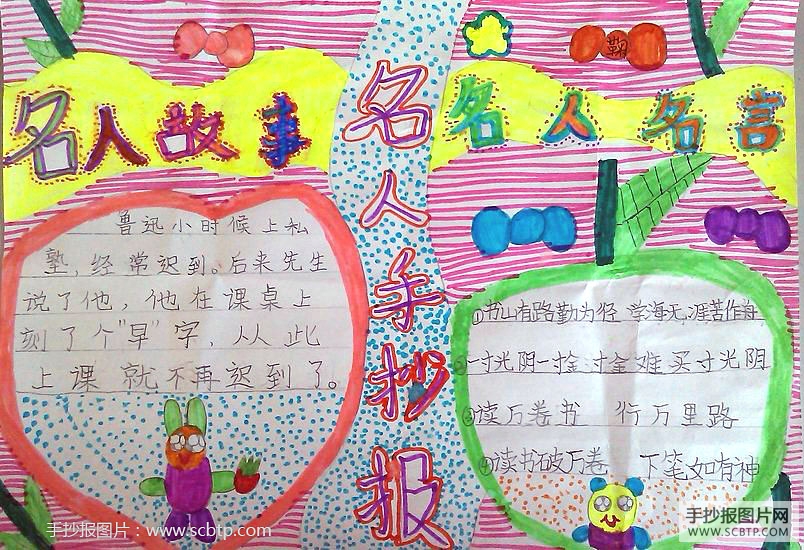 名人故事
鲁迅小时候上私
塾，经常迟到。后来先生
说了他，他在课桌上
刻了个"早"字，从此
上课就不再迟到了。
名人手抄报
名人名言
①书山有路勤为径 学海无涯苦作舟
②一寸光阴一寸金 寸金难买寸光阴
③读万卷书 行万里路
④读书破万卷 下笔如有神
手抄报图片：www.scbtp.com
手抄报图片网
WWW.SCBTP.COM